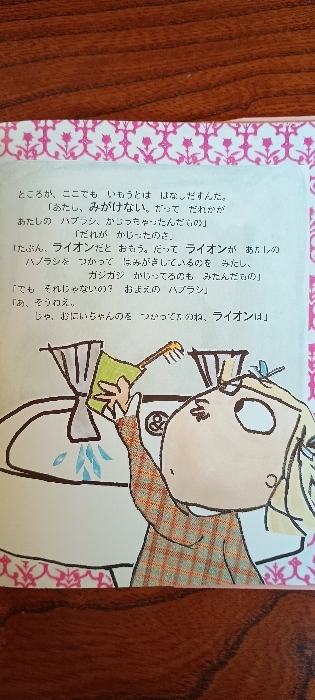 ところが、ここでも いもうとは はなしだすんだ。
「あたし、みがけない。だって だれかが
あたしの ハブラシ、かじっちゃったんだもの」
「だれが かじったのさ」
「たぶん、ライオンだと おもう。だって ライオンが あたしの
ハブラシを つかって はみがきしているのを みたし、
ガジガジ かじってるのも みたんだもの」
「でも それじゃないの？ おまえの ハブラシ」
「あ、そうねえ。
じゃ、おにいちゃんのを つかってたのね、ライオンは」